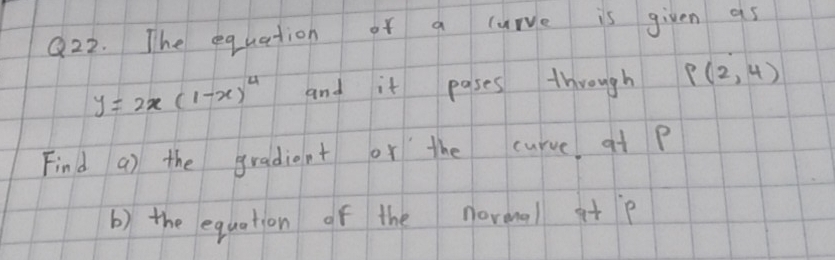 Q22. The equation of a curve is given as
y = 2x (1-x)⁴ and it pases through P(2,4)
Find a) the gradient of the curve at P
b) the equation of the normal at P